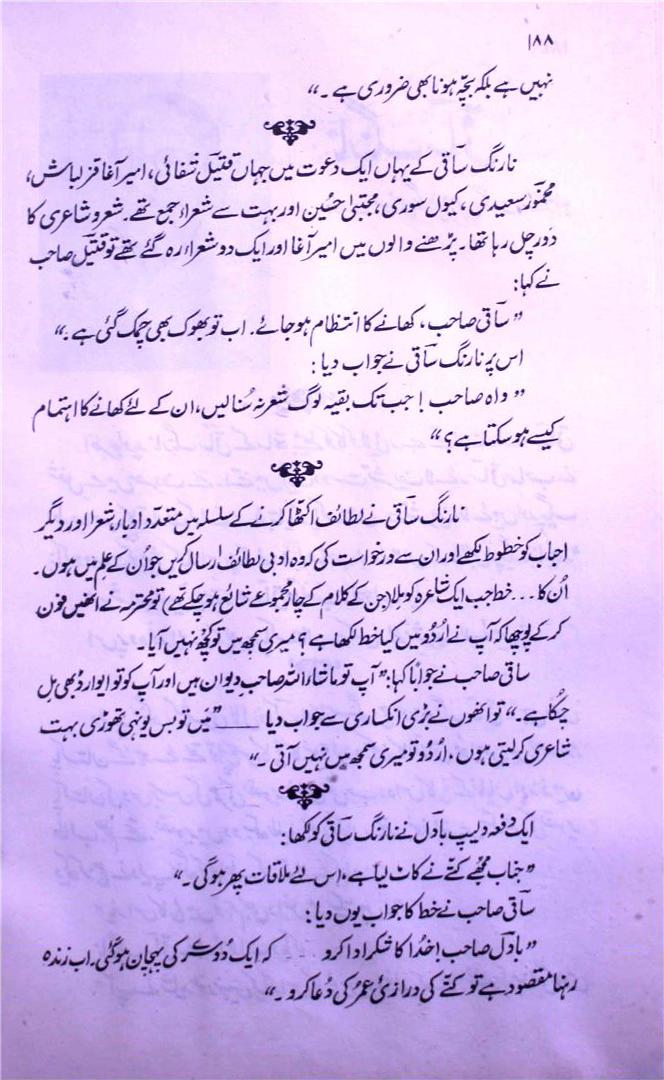 ۱۸۸
نہیں ہے بلکہ بچّہ ہونا بھی ضروری ہے۔“
نارنگ ساقی کے یہاں ایک دعوت میں جہاں قتیل شفائی، امیر آغا قزلباش،
مخمور سعیدی، کیول سوری، مجتبیٰ حسین اور بہت سے شعراء جمع تھے۔ شعر و شاعری کا
دَور چل رہا تھا۔ پڑھنے والوں میں امیر آغا اور ایک دو شعراء رہ گئے تھے تو قتیل صاحب
نے کہا:
”ساقی صاحب، کھانے کا انتظام ہو جائے۔ اب تو بھوک بھی چمک گئی ہے۔“
اس پر نارنگ ساقی نے جواب دیا:
”واہ صاحب! جب تک بقیہ لوگ شعر نہ سُنا لیں، ان کے لئے کھانے کا اہتمام
کیسے ہو سکتا ہے؟“
نارنگ ساقی نے لطائف اکٹھا کرنے کے سلسلہ میں متعدد ادباء، شعرا اور دیگر
احباب کو خطوط لکھے اور ان سے درخواست کی کہ وہ ادبی لطائف ارسال کریں جو اُن کے علم میں ہوں۔
اُن کا... خط جب ایک شاعرہ کو ملا (جن کے کلام کے چار مجموعے شائع ہو چکے تھے) تو محترمہ نے انھیں فون
کر کے پوچھا کہ آپ نے اُردو میں کیا خط لکھا ہے؟ میری سمجھ میں تو کچھ نہیں آیا۔
ساقی صاحب نے جواباً کہا: ”آپ تو ماشاء اللہ صاحبِ دیوان ہیں اور آپ کو تو ایوارڈ بھی مل
چکا ہے۔“ تو انھوں نے بڑی انکساری سے جواب دیا ــــ ”میں تو بس یونہی تھوڑی بہت
شاعری کر لیتی ہوں، اُردو تو میری سمجھ میں نہیں آتی۔“
ایک دفعہ دلیپ بادل نے نارنگ ساقی کو لکھا:
”جناب مجھے کتّے نے کاٹ لیا ہے، اس لئے ملاقات پھر ہوگی۔“
ساقی صاحب نے خط کا جواب یوں دیا:
”بادل صاحب! خُدا کا شکر ادا کرو .... کہ ایک دُوسرے کی پہچان ہو گئی۔ اب زندہ
رہنا مقصود ہے تو کتّے کی درازیٔ عمر کی دُعا کرو۔“